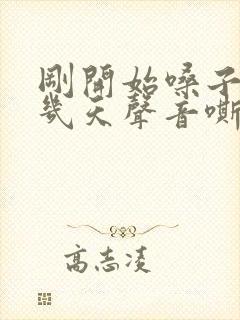 剛開始嗓子
幾天聲音嘶
高志凌